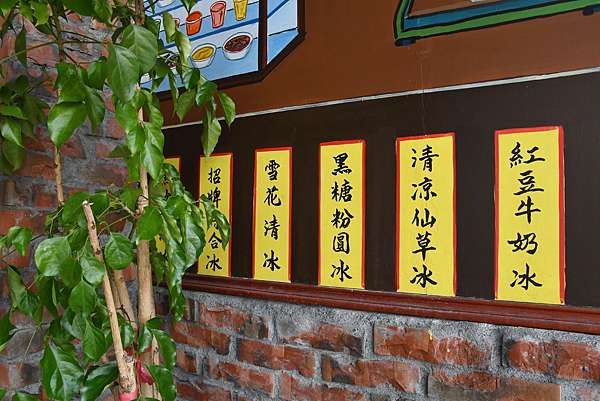 紅豆牛奶冰
清凉仙草冰
黑糖粉圓冰
雪花清冰
招牌合冰